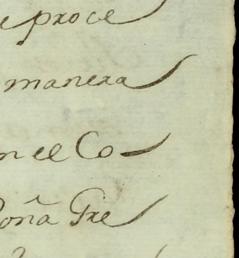 e proce
manera
en el Co
Doña Gre